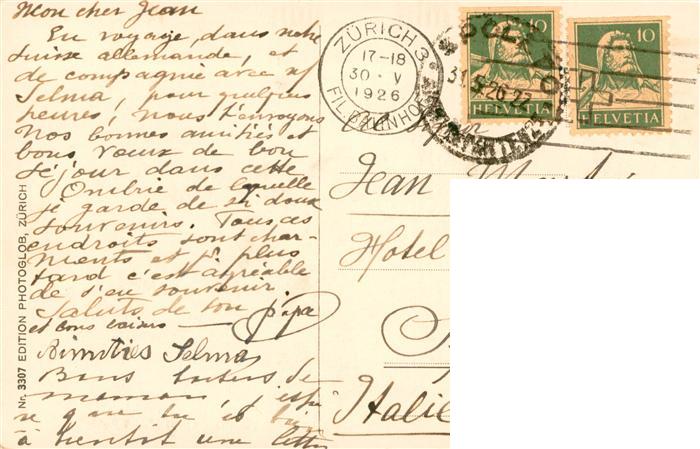 Mon cher Jean
En voyage, dans notre
suisse allemande, et
de compagnie avec
Selma, pour quelques
heures, nous t'envoyons
nos bonnes amitiés et
bons voeux de bon
séjour dans cette
Ombrie de laquelle
je garde de si doux
souvenirs. Tous ces
endroits sont char-
ments et plus
tard c'est agréable
de s'en souvenir.
Saluts de ton papa
et bons baisers
Amitiés Selma
Bons baisers de
maman, j'espè
re que tu
à bientôt une lettre
Nr. 3307 EDITION PHOTOGLOB, ZÜRICH
ZÜRICH 3
17-18
30. V
1926
FIL. BAHNHOF
31.5.26.22
10
HELVETIA
10
HELVETIA
Jean
Hotel
Italie